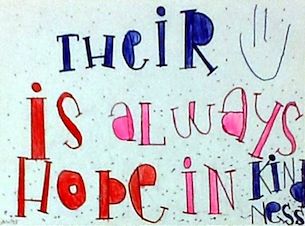 Their
is always
Hope in Kind
ness